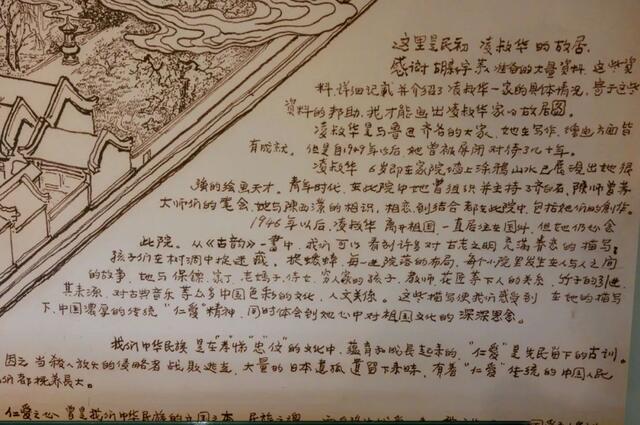 这里是民初 凌叔华 的故居.
感谢 胡 准备的大量资料. 这些资
料.详细记载并介绍了凌叔华一家的具体情况. 基于这些
资料的帮助.我才能画出凌叔华家的故居图.
凌叔华是与鲁迅齐名的大家. 她在写作、绘画方面皆
有成就. 但是自1949年以后 她曾被屏闭对待了几十年.
凌叔华 6岁即在家院墙上涂鸦山水已展现出她很
强的绘画天才. 青年时代. 在此院中她曾组织并主持了齐白石、陈师曾等
大师们的笔会. 她与陈西滢的相识, 相恋到结合 都在此院中. 包括她们的创作.
1946年以后. 凌叔华 离开祖国 一直居住在国外. 但她仍心念
此院. 从《古韵》一书中, 我们可以看到许多对古老文明 充满眷恋的描写:
孩子们在树洞中捉迷藏、 捉蟋蟀, 每一进院落的布局, 每个小院里发生在人与人之间
的故事, 她与 保镖、家丁、老妈子、侍女、穷人家的孩子、教师、花匠等下人的关系, 竹子的引进、
其来源. 对古典音乐等众多中国色彩的文化, 人文关怀。 这些描写使我们感受到 在她的描写
下, 中国浓厚的传统“仁爱”精神, 同时体会到她心中对祖国文化的 深深思念.
我们中华民族 是在“孝”“悌”“忠”“信”的文化中, 蕴育和成长起来的, “仁爱”是先民留下的古训.
因之 当杀人放火的侵略者 战败逃生, 大量的日本遗孤 遗留下来时, 有着“仁爱”传统的 中国人民
们都抚养长大。
仁爱之心 曾是我们中华民族的立国之本 民族之魂